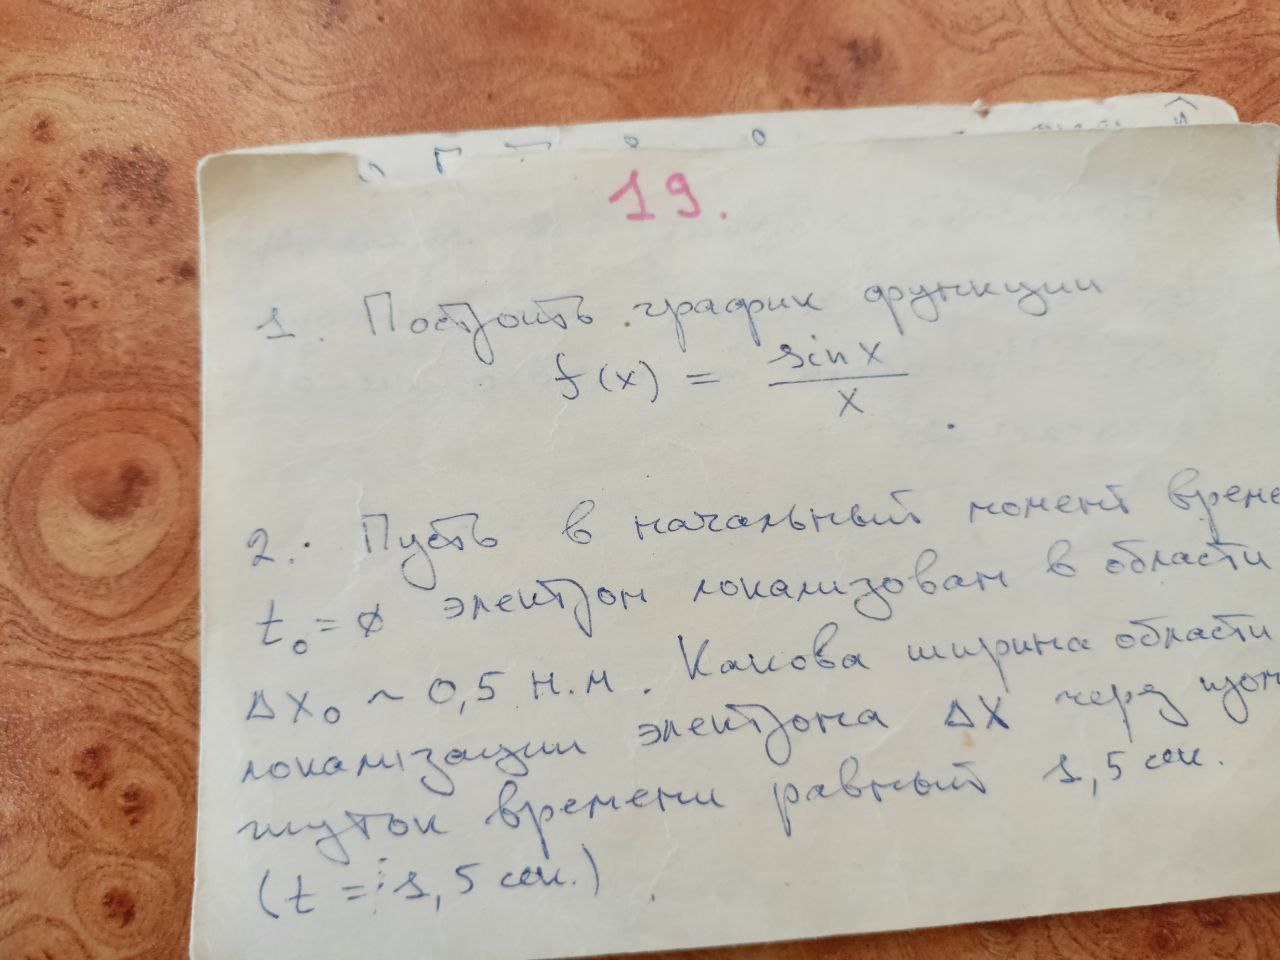 19.
1. Построить график функции
f(x) = sin x / x .
2. Пусть в начальный момент време
t₀ = ∅ электрон локализован в области
Δx₀ ~ 0,5 н.м. Какова ширина области
локализации электрона Δx через пром
жуток времени равный 1,5 сек.
(t = 1,5 сек.) .